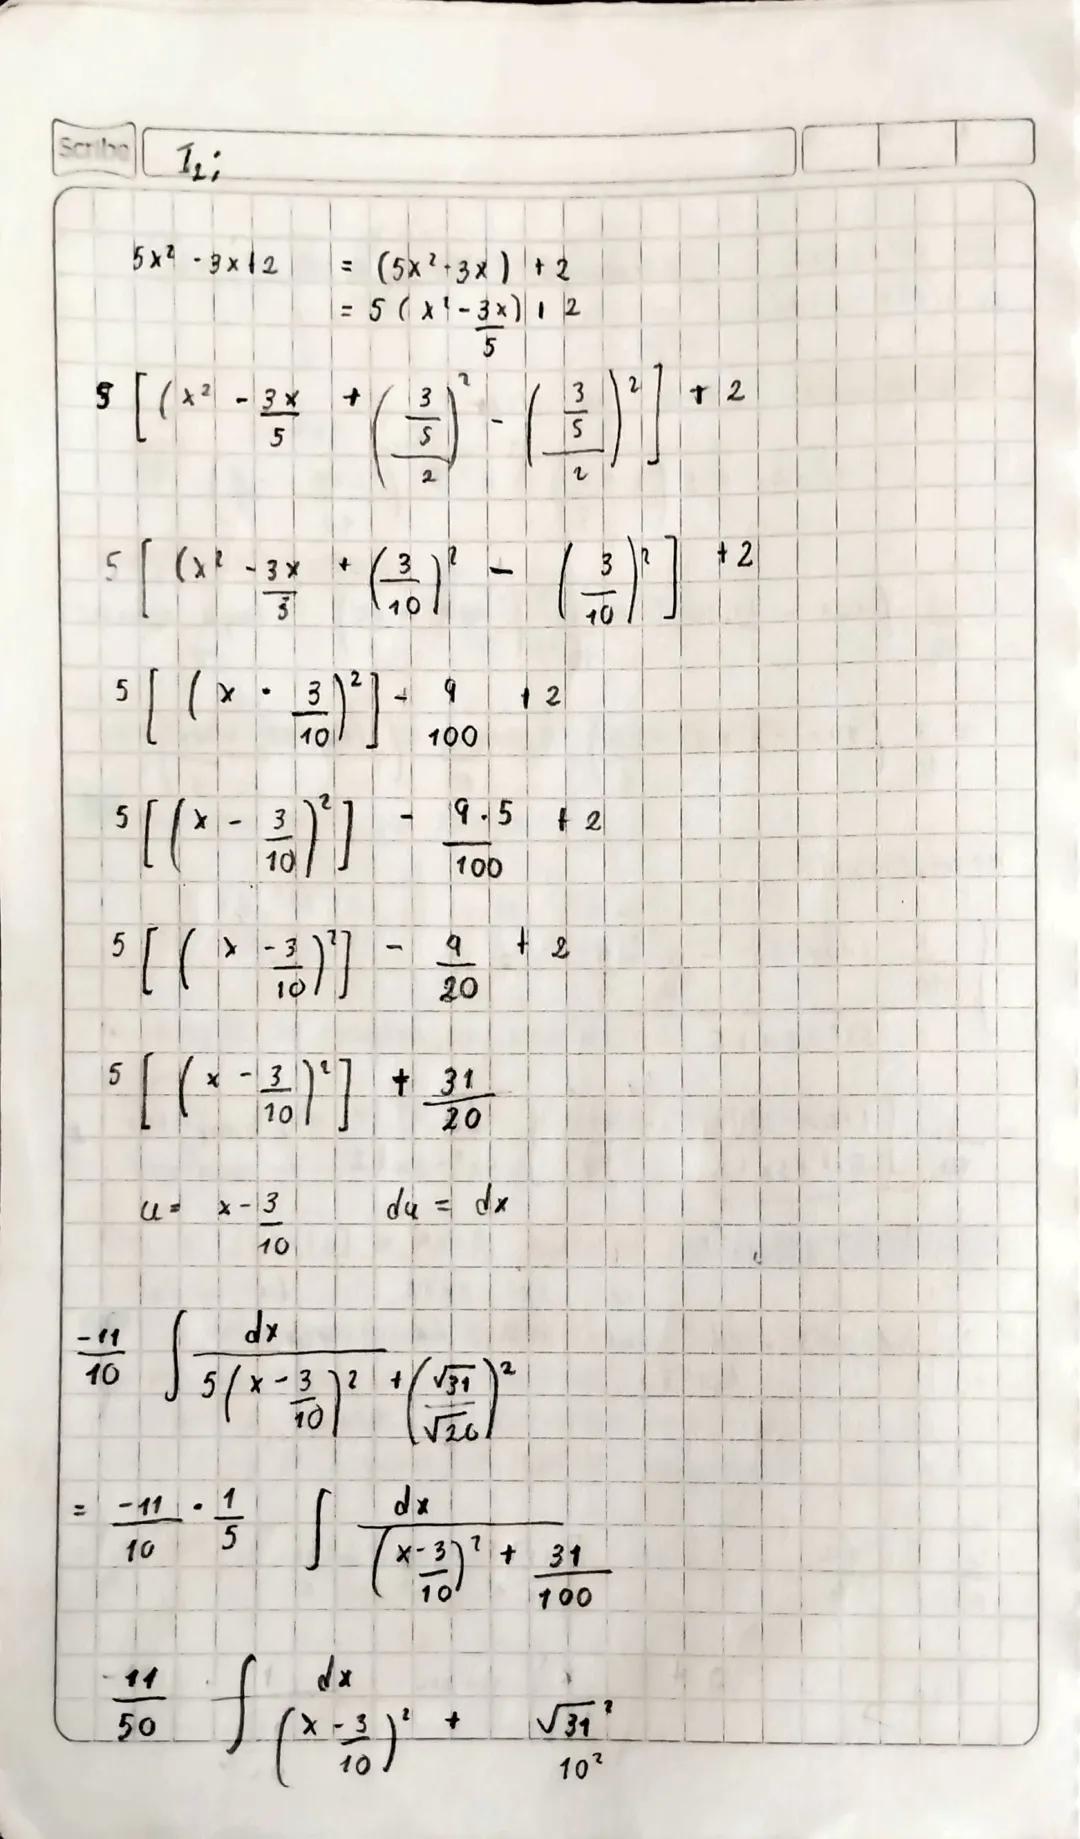 Scribe
I₂;
5x² - 3x + 2 = (5x² - 3x) + 2
= 5 (x² - 3x/5) + 2
5 [(x² - 3x/5 + ((3/5)/2)² - ((3/5)/2)²] + 2
5 [(x² - 3x/3 + (3/10)² - (3/10)²] + 2
5 [(x - 3/10)²] - 9/100 + 2
5 [(x - 3/10)²] - 9·5/100 + 2
5 [(x - 3/10)²] - 9/20 + 2
5 [(x - 3/10)²] + 31/20
u = x - 3/10 du = dx
-11/10 ∫ dx / (5(x - 3/10)² + (√31/√20)²)
= -11/10 · 1/5 ∫ dx / ((x - 3/10)² + 31/100)
-11/50 ∫ dx / ((x - 3/10)² + √31²/10²)